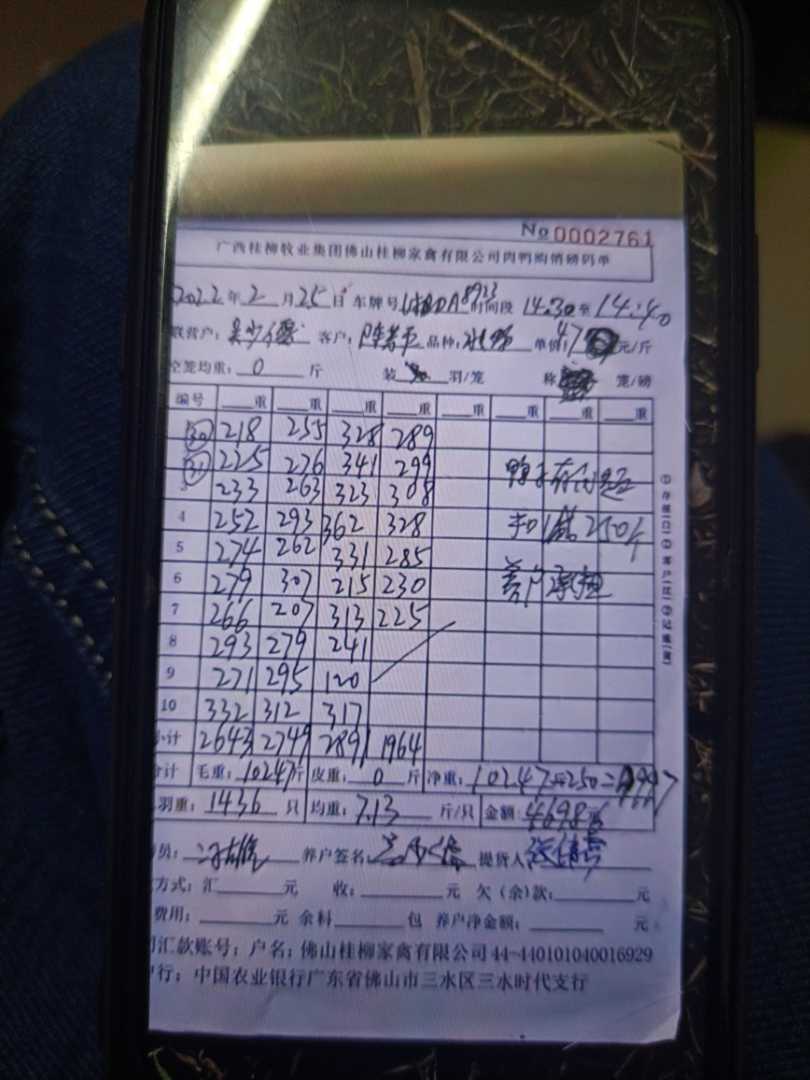 No 0002761
广西桂柳牧业集团佛山桂柳家禽有限公司肉鸭购销磅码单
2022年2月25日 车牌号 8923 时间段 14:30至14:40
联营户: 客户: 品种: 单价:47 元/斤
空笼均重:0斤 装 羽/笼 称 笼/磅
编号 重 重 重 重 重 重 重 重
30 218 255 328 289
31 225 276 341 299 鸭子有问题
3 233 263 323 308
4 252 293 362 328 扣 250斤
5 274 262 331 285
6 279 307 215 230 养户承担
7 266 207 313 225
8 293 279 241
9 271 295 120
10 332 312 317
小计 2643 2749 2891 1964
合计 毛重:10247斤 皮重:0斤 净重:10247-250=9997
羽重:1436只 均重:7.13斤/只 金额:46986
员: 养户签名: 提货人
方式:汇 元 收: 元 欠(余)款: 元
费用: 元 余料 包 养户净金额: 元
汇款账号:户名:佛山桂柳家禽有限公司 44-440101040016929
行:中国农业银行广东省佛山市三水区三水时代支行